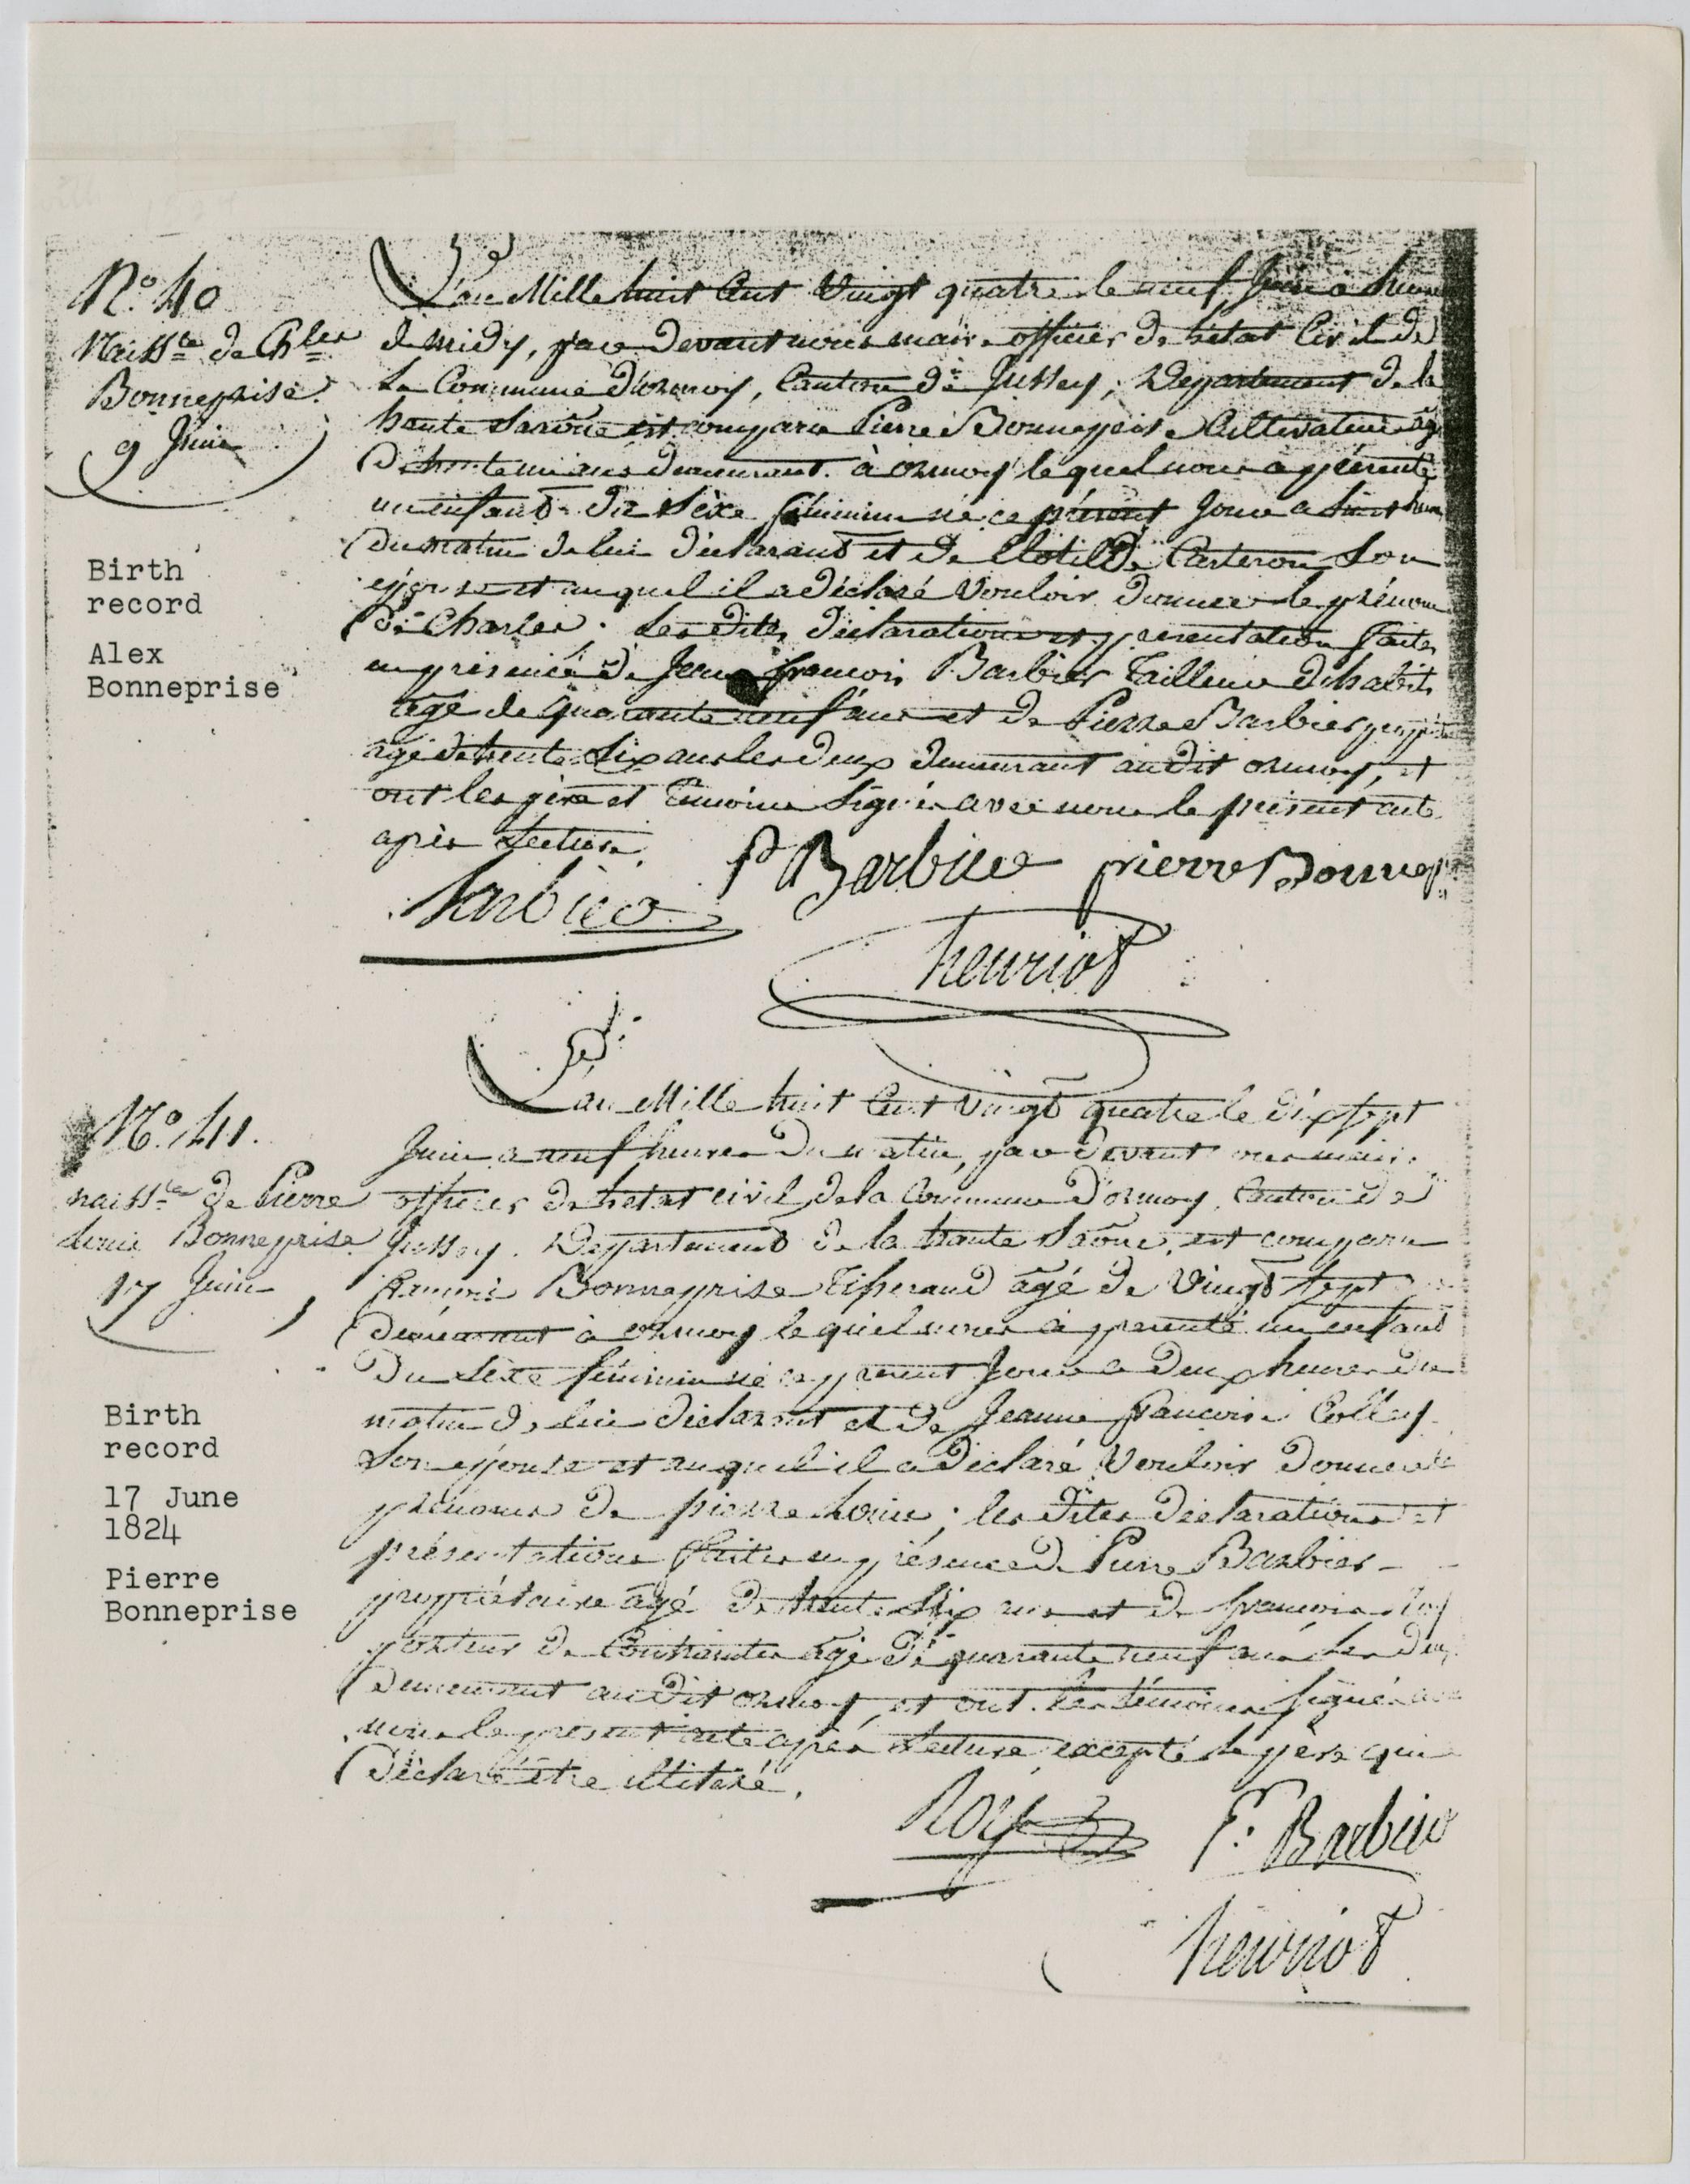 N.° 40
Naiss.ce de Ch.les
Bonneprise.
9 Juin
L'an Mille huit Cent Vingt quatre le neuf Juin a heure
de midy, par devant nous maire officier de l'état Civil de
la Commune d'ormoy, Canton de Jussey, Departement de la
haute Saône est comparu Pierre Bonneprise Cultivateur âg
De trente un ans demeurant à ormoy lequel nous a présenté
un enfant du Sèxe féminin né ce présent Jour a heur
Du matin de lui déclarant et de Clotilde Carteron Son
épouse et auquel il a déclaré Vouloir donner le prénom
De Charles. Les dites déclaration et présentation faites
en présence de Jean françois Barbier Tailleur d'habits
âgé de quarante neuf ans et de Pierre Barbier
âgé de trente Six ans les deux demeurant audit ormoy, et
ont les père et Témoins Signés avec nous le présent acte
après Lecture.
P Barbier pierre Bonnep
Barbier
henriot
Birth
record
Alex
Bonneprise
N.° 41.
naiss.ce de Pierre
Louis Bonneprise
17 Juin
L'an Mille huit Cent Vingt quatre le dix sept
Juin a neuf heures Du matin, par devant nous maire
officier de l'état civil de la Commune D'ormoy, Canton de
Jussey. Departement de la haute Saône, est comparu
François Bonneprise Tisserand âgé de Vingt sept
demeurant à ormoy lequel nous a présenté un enfant
Du Sèxe féminin né ce présent Jour a deux heures du
matin de lui déclarant et de Jeanne françoise Colley
Son épouse et auquel il a déclaré Vouloir donner le
prénoms de pierre Louis; les dites déclaration et
présentations faites en présence de Pierre Barbier
propriétaire âgé de trente Six ans et de françois Roy
porteur de Contraintes âgé de quarante neuf ans Les deux
demeurant audit ormoy, et ont les témoins signés avec
nous le présent acte après Lecture excepté le père qui a
Déclaré être illitéré.
Roy P. Barbier
henriot
Birth
record
17 June
1824
Pierre
Bonneprise